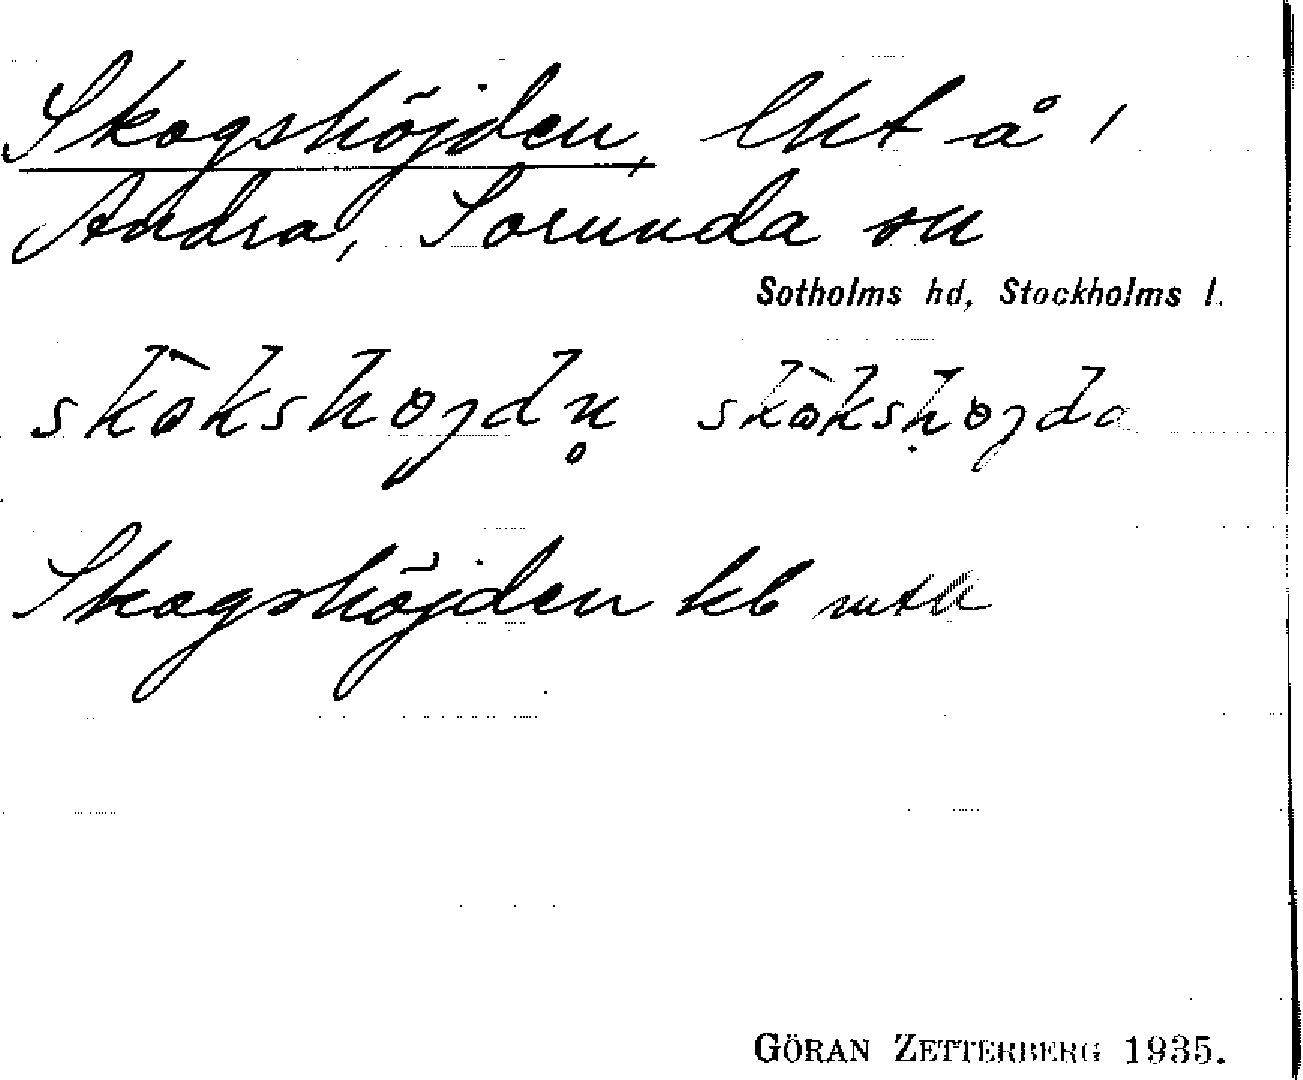 Skogshöjden, lht å 1
Andra, Sorunda sn
Sotholms hd, Stockholms l.
skòkshøjdn̥ skòkshøjda
Skogshöjden kb mtk
GÖRAN ZETTERBERG 1935.